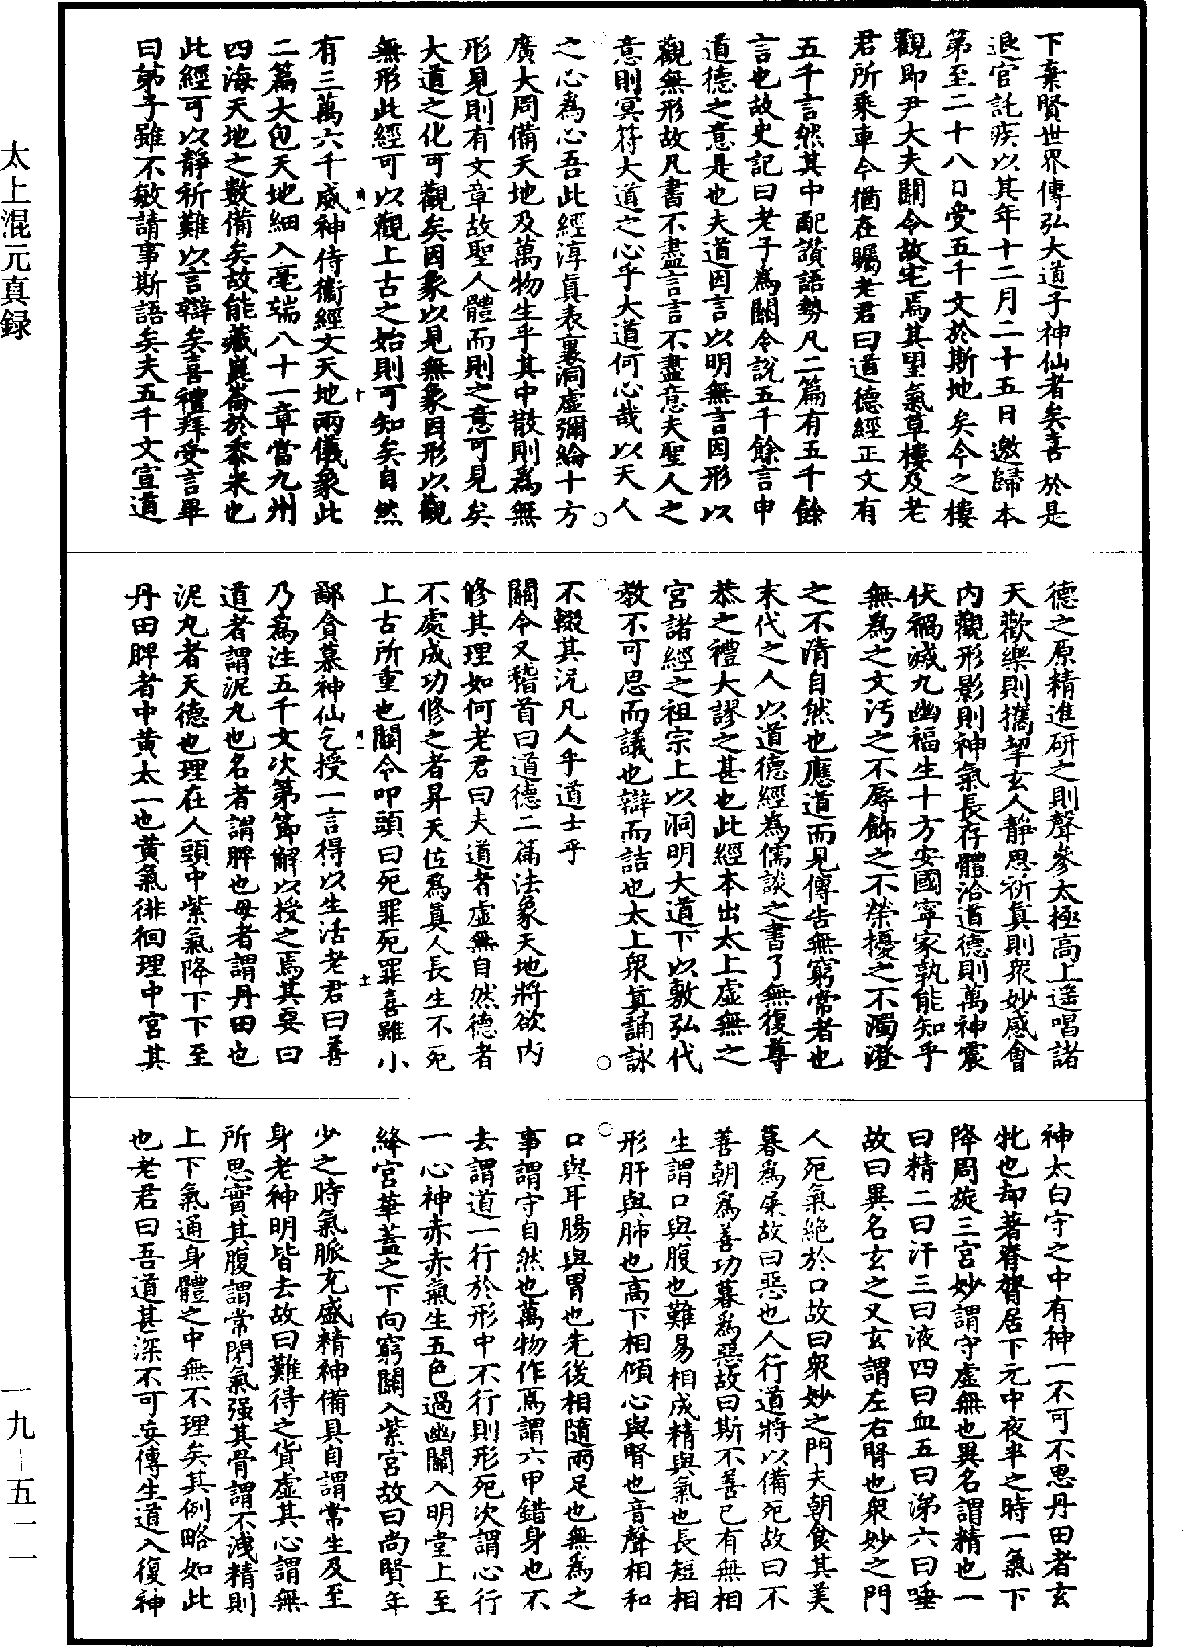 太上混元真録
下棄賢世界傳弘大道子神仙者矣喜於是
退官託疾以其年十二月二十五日邀歸本
第至二十八日受五千文於斯地矣今之樓
觀即尹大夫關令故宅焉其望氣草樓及老
君所乘車今猶在矚老君曰道德經正文有
五千言然其中配讚語勢凡二篇有五千餘
言也故史記曰老子為關令說五千餘言中
道德之意是也夫道因言以明無言因形以
觀無形故凡書不盡言言不盡意夫聖人之
意則冥符大道之心乎大道何心哉以天人
之心為心吾此經淳真表裏洞虛彌綸十方
廣大周備天地及萬物生乎其中散則為無
形見則有文章故聖人體而則之意可見矣
大道之化可觀矣因象以見無象因形以觀
無形此經可以觀上古之始則可知矣自然
有三萬六千威神侍衛經文天地兩儀象此
二篇大包天地細入毫端八十一章當九州
四海天地之數備矣故能藏崑崙於黍米也
此經可以靜祈難以言辯矣喜禮拜受言畢
曰弟子雖不敏請事斯語矣夫五千文宣道
德之原精進研之則聲參太極高上遥唱諸
天歡樂則攜契玄人靜思祈真則衆妙感會
内觀形影則神氣長存體洽道德則萬神震
伏禍滅九幽福生十方安國寧家孰能知乎
無為之文汚之不辱飾之不榮擾之不濁澄
之不清自然也應道而見傳告無窮常者也
末代之人以道德經為儒談之書了無復尊
恭之禮大謬之甚也此經本出太上虛無之
宮諸經之祖宗上以洞明大道下以敷弘代
教不可思而議也辯而詰也太上衆真誦詠
不輟其況凡人乎道士乎
關令又稽首曰道德二篇法象天地將欲内
修其理如何老君曰夫道者虛無自然德者
不處成功修之者昇天位為真人長生不死
上古所重也關令叩頭曰死罪死罪喜雖小
鄙貪慕神仙乞授一言得以生活老君曰善
乃為注五千文次第節解以授之焉其要曰
道者謂泥丸也名者謂脾也母者謂丹田也
泥丸者天德也理在人頭中紫氣降下下至
丹田脾者中黄太一也黄氣徘徊理中宮其
神太白守之中有神一不可不思丹田者玄
牝也却著脊膂居下元中夜半之時一氣下
降周旋三宮妙謂守虛無也異名謂精也一
曰精二曰汗三曰液四曰血五曰涕六曰唾
故曰異名玄之又玄謂左右腎也衆妙之門
人死氣絶於口故曰衆妙之門夫朝食其美
暮為屎故曰惡也人行道將以備死故曰不
善朝為善功暮為惡故曰斯不善已有無相
生謂口與腹也難易相成精與氣也長短相
形肝與肺也高下相傾心與腎也音聲相和
口與耳腸與胃也先後相隨兩足也無為之
事謂守自然也萬物作焉謂六甲錯身也不
去謂道一行於形中不行則形死次謂心行
一心神赤赤氣生五色過幽關入明堂上至
絳宮華蓋之下向窮關入紫宮故曰尚賢年
少之時氣脈充盛精神備具自謂常生及至
身老神明皆去故曰難得之貨虛其心謂無
所思實其腹謂常閉氣强其骨謂不洩精則
上下氣通身體之中無不理矣其例略如此
也老君曰吾道甚深不可妄傳生道入復神
一九-五一二